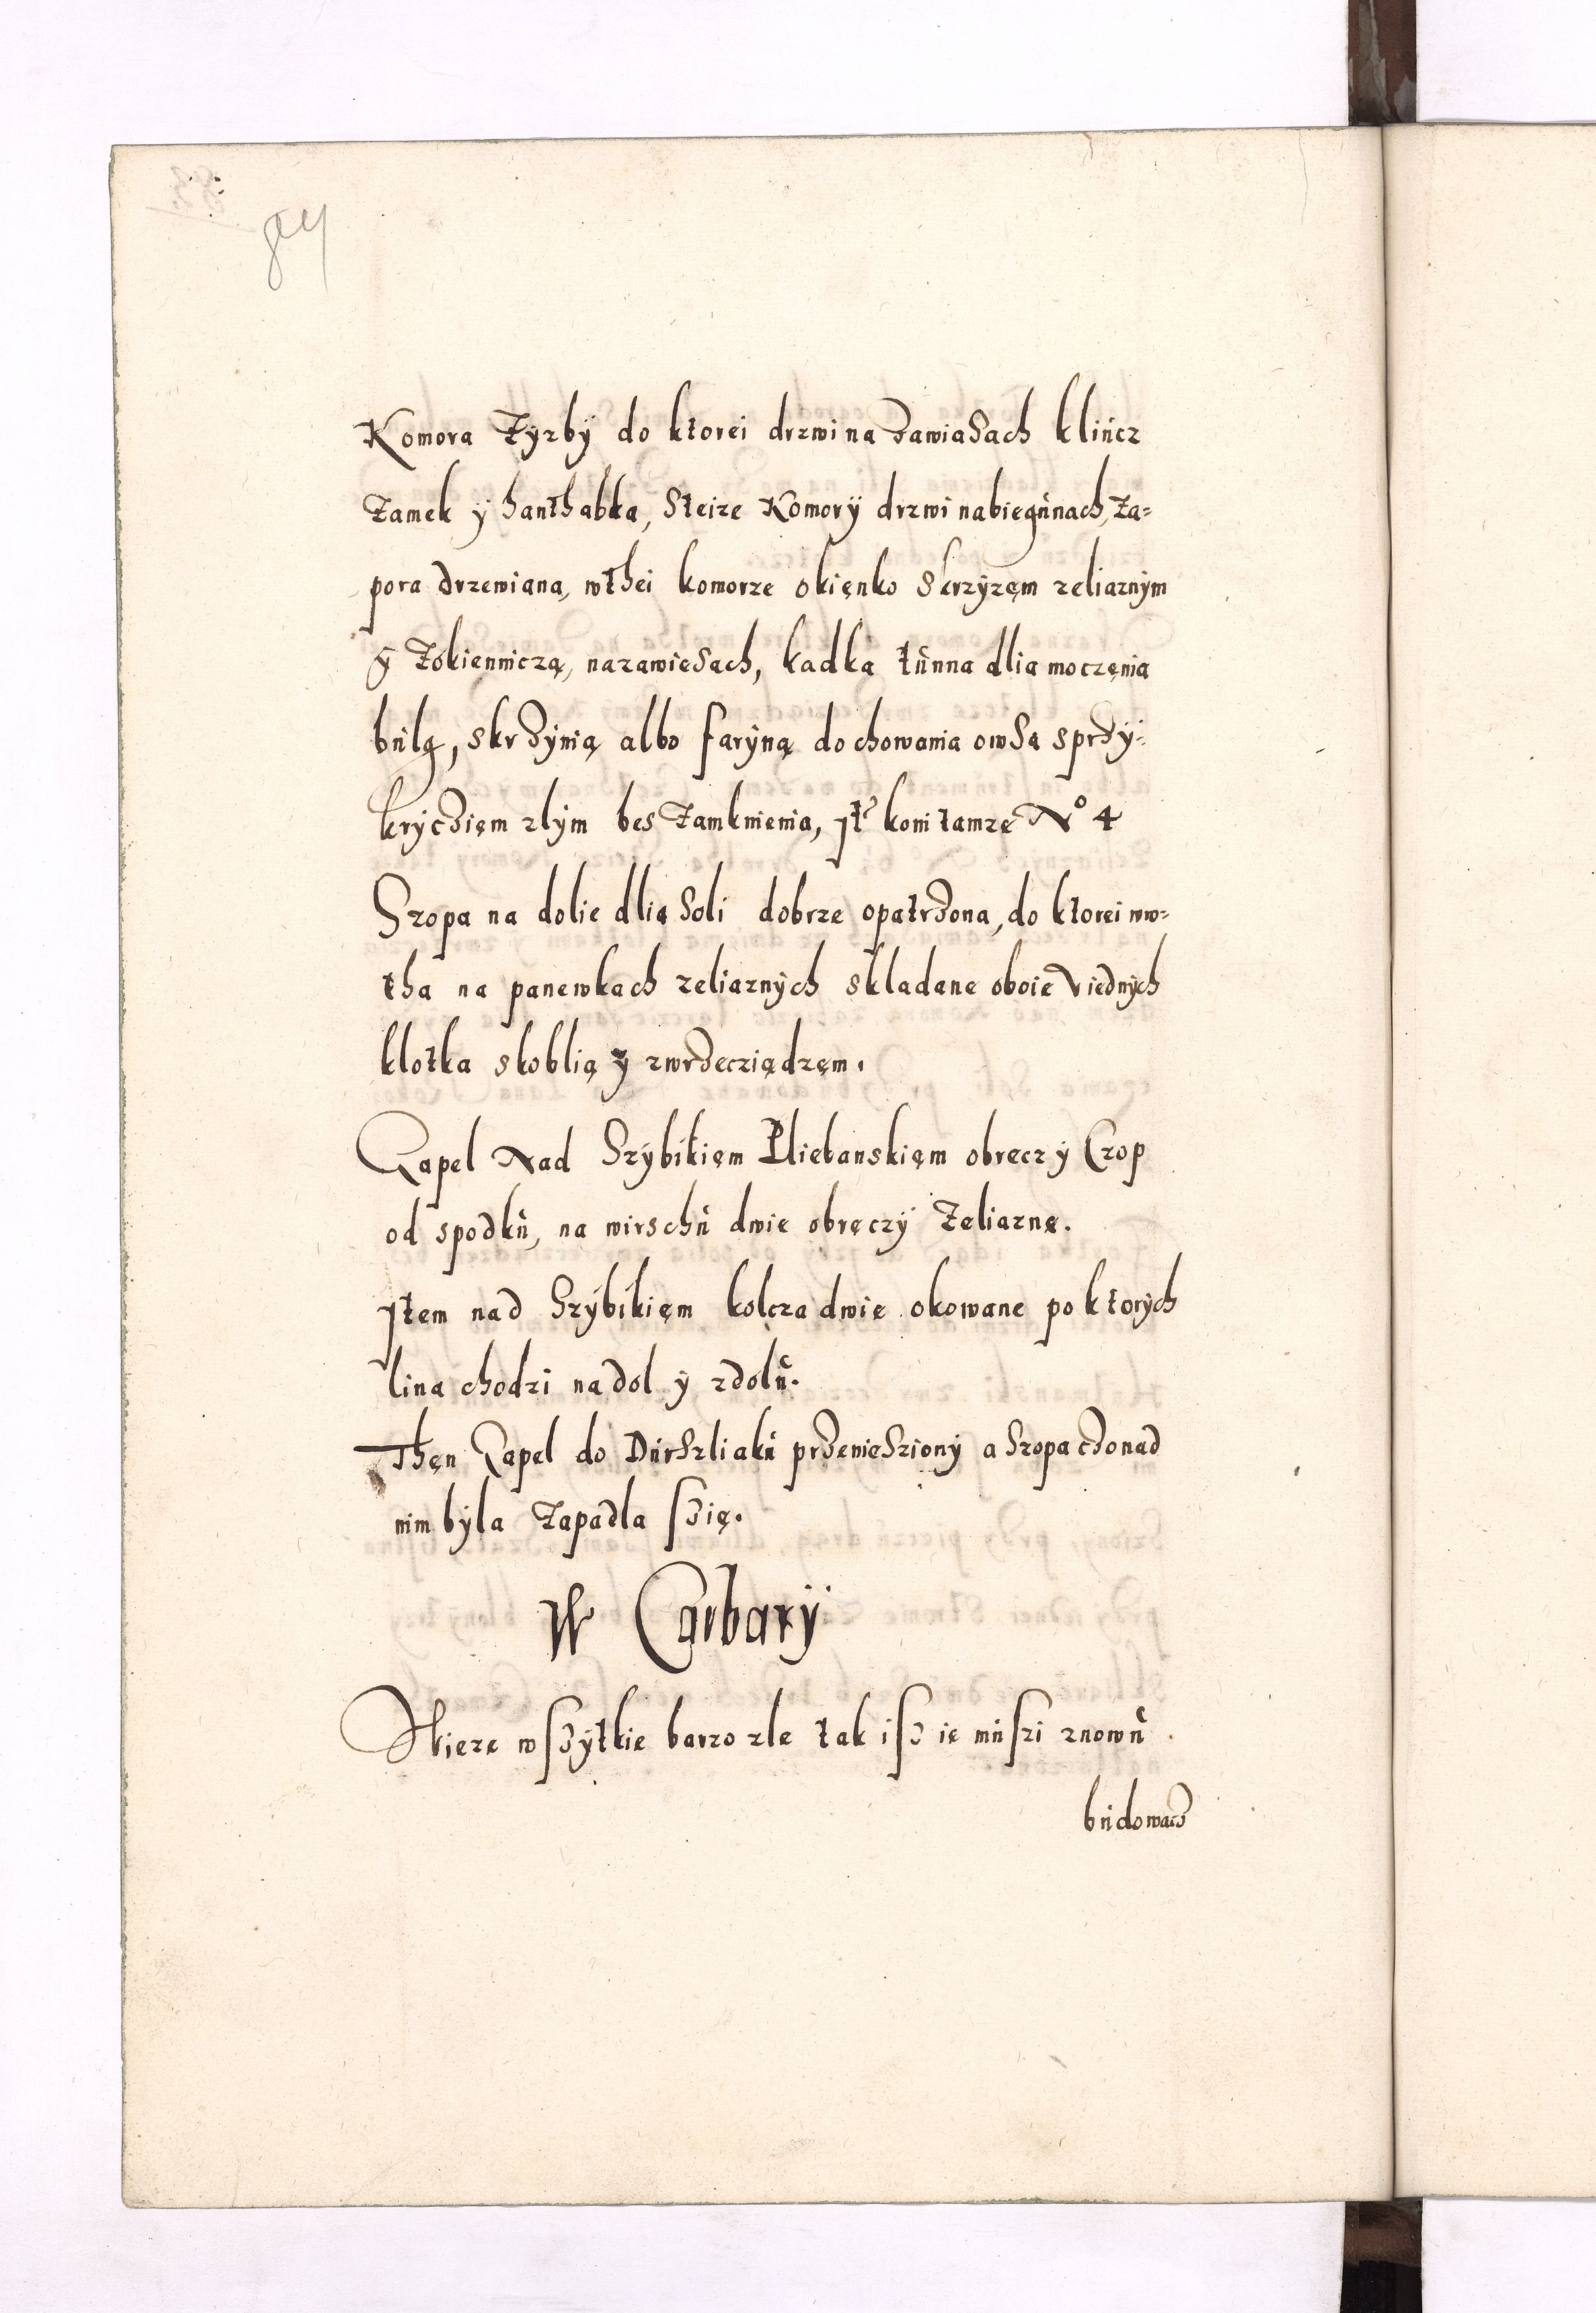 84
Komora zyzby do ktorei drzwi na zawiasach klucz
zamek y hanthabka, Steize Komory drzwi nabiegunach, za-
pora drzewiana, wthei komorze okięnko skrzyzęm zeliaznym
y zokienniczą, nazawiesach, kadka łunna dlia moczęnia
bulg, skrzynią albo faryną do chowania owsa sprzy-
krycziem złym bes zamknienia, Jt koni tamze No 4
Szopa na dolie dlia Soli dobrze opatrzona, do ktorei wro-
tha na panewkach zeliaznych skladane oboie v iednych
klotka skoblią y zwrzecziądzęm.
Qapel Nad Szybikięm Pliebanskięm obręcz y Czop
od spodku, na wirschu dwie obręczy zeliazne.
Jtem nad Szybikięm kolcza dwie okowane po ktorych
lina chodzi na dol y zdolu.
Thęn Qapel do Durszliaku przeniesziony a szopa czo nad
nim byla zapadla szię.
W Carbary
Wieze wszytkie barzo zle tak isz ie muszi znowu
budowacz